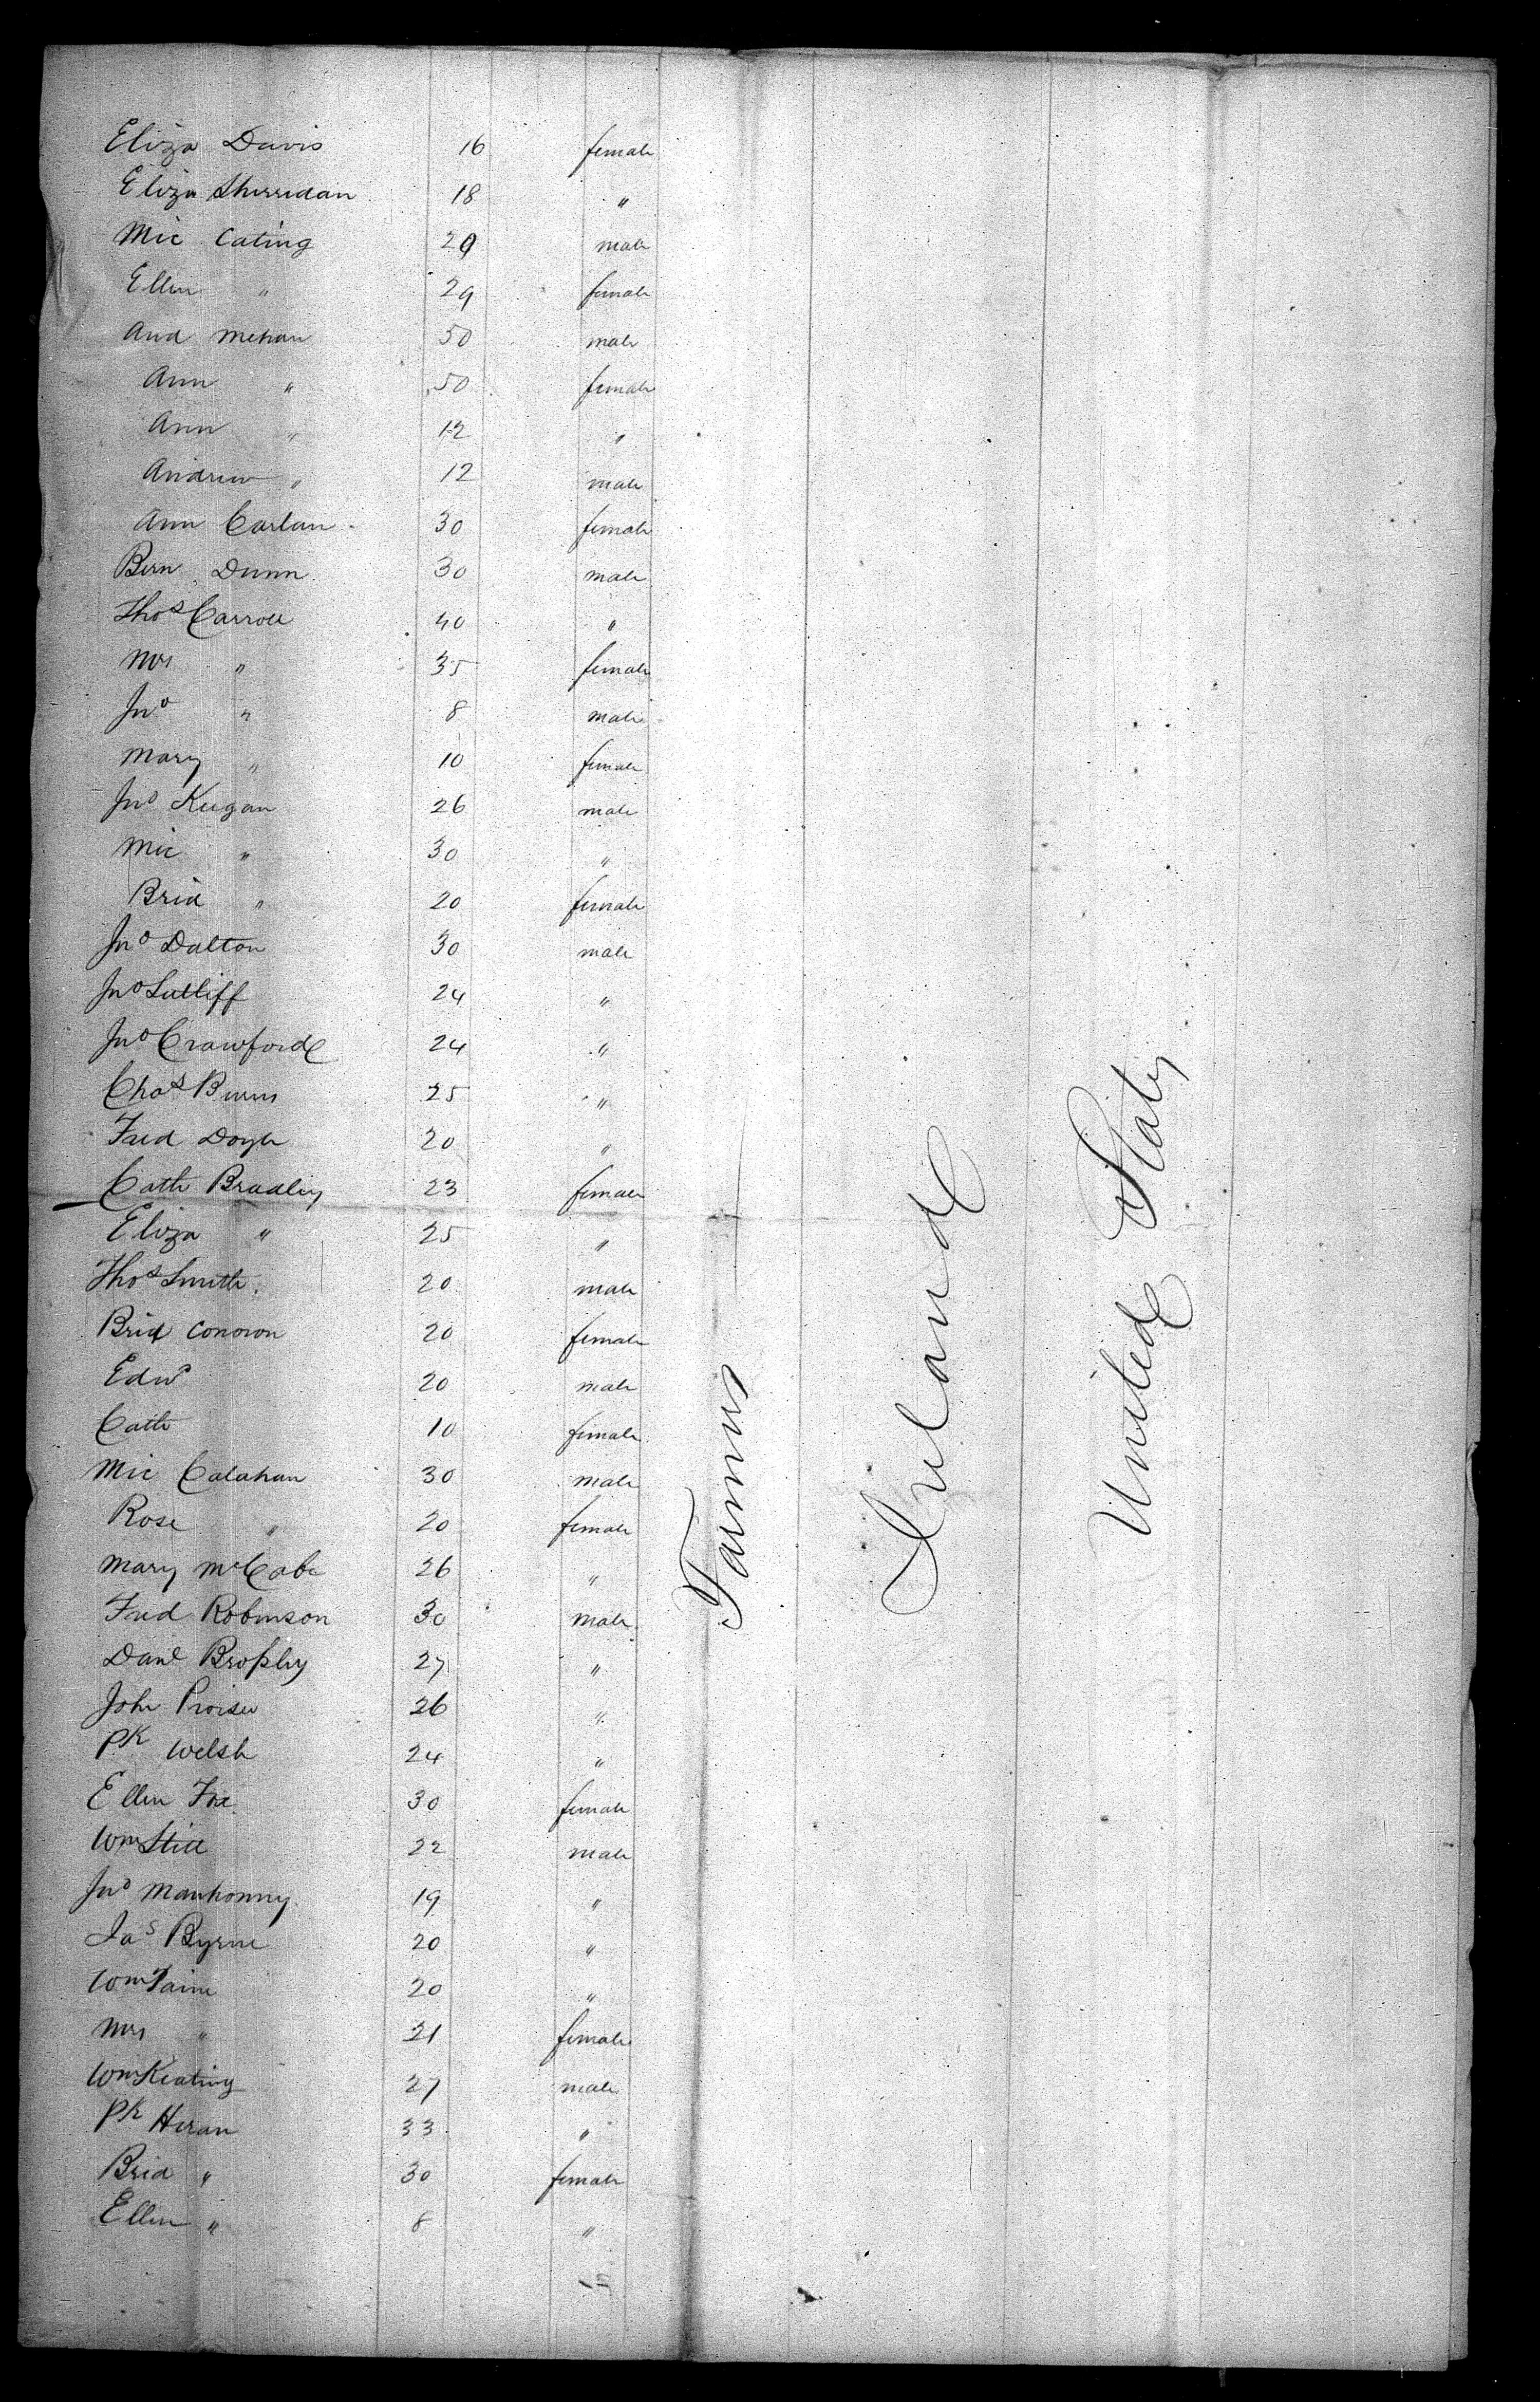 Eliza Davis 16 female
Eliza Sherridan 18 "
Mic Cating 29 male
Ellen " 29 female
And Mehan 50 male
Ann " 50 female
Ann " 12 "
Andrew " 12 male
Ann Carlan 30 female
Bern Dunn 30 male
Thos Carroll 40 "
Mrs " 35 female
Jno " 8 male
Mary " 10 female
Jno Keegan 26 male
Mic " 30 "
Brid " 20 female
Jno Dalton 30 male
Jno Sutliff 24 "
Jno Crawford 24 "
Chas Burns 25 "
Fred Doyle 20 "
Cath Bradley 23 female
Eliza " 25 "
Thos Smith 20 male
Brid Conoron 20 female
Edwd 20 male
Cath 10 female
Mic Calahan 30 male
Rose " 20 female
Mary McCabe 26 "
Fred Robinson 30 male
Danl Brophy 27 "
John 26 "
Pk Welsh 24 "
Ellen Fox 30 female
Wm Still 22 male
Jno Manhonny 19 "
Jas Byrne 20 "
Wm Paine 20 "
Mrs " 21 female
Wm Keating 27 male
Pk Heran 33 "
Brid " 30 female
Ellen " 8 "
Farmers
Ireland
United States